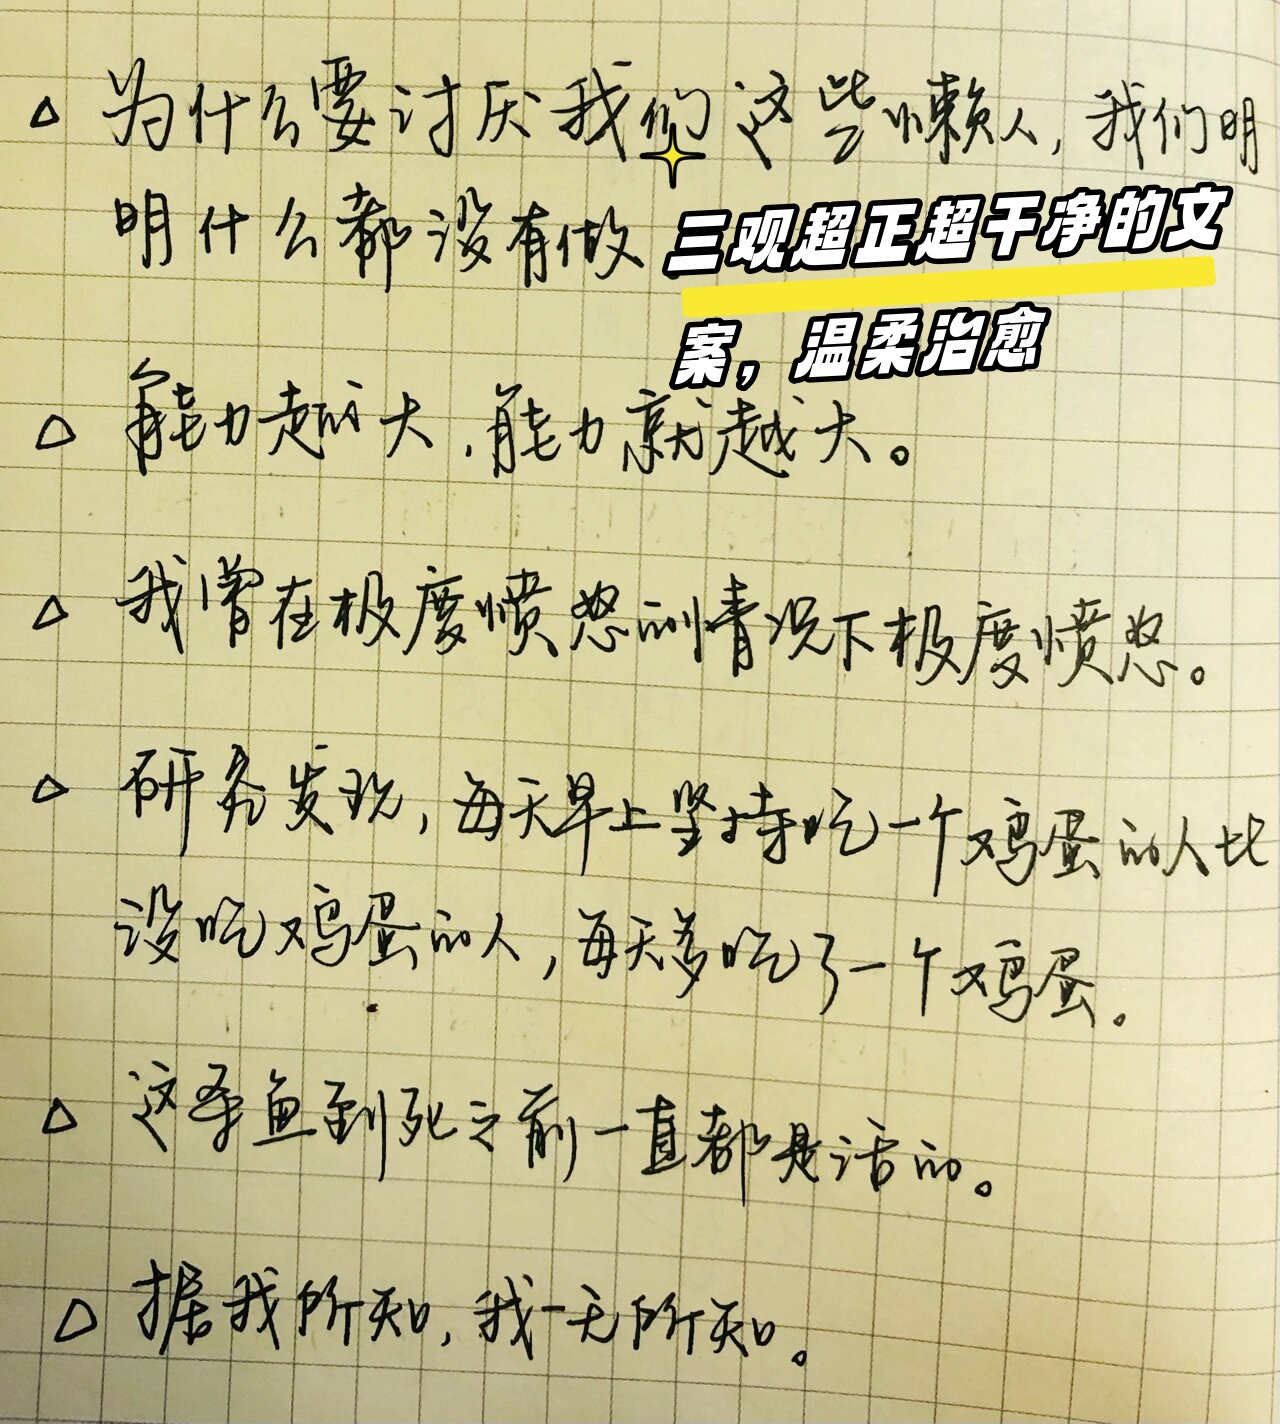 为什么要讨厌我们这些懒人,我们明
明什么都没有做
三观超正超干净的文
案，温柔治愈
能力越大,能力就越大。
我曾在极度愤怒的情况下极度愤怒。
研究发现,每天早上坚持吃一个鸡蛋的人比
没吃鸡蛋的人,每天多吃了一个鸡蛋。
这条鱼到死之前一直都是活的。
据我所知,我一无所知。